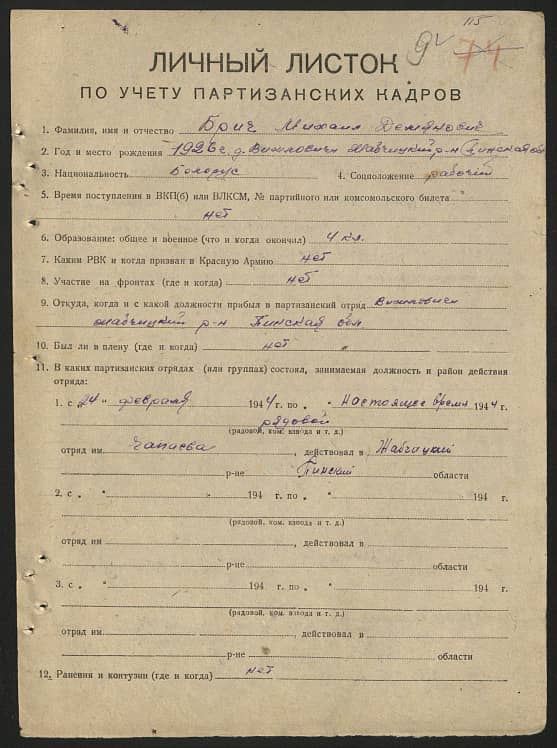 115
74
ЛИЧНЫЙ ЛИСТОК
ПО УЧЕТУ ПАРТИЗАНСКИХ КАДРОВ
1. Фамилия, имя и отчество Брич Михаил Демянович
2. Год и место рождения 1926 г. д. Вяжловичи Жабчицкий р-н Пинская обл
3. Национальность Белорус 4. Соцположение рабочий
5. Время поступления в ВКП(б) или ВЛКСМ, № партийного или комсомольского билета
нет
6. Образование: общее и военное (что и когда окончил) 4 кл.
7. Каким РВК и когда призван в Красную Армию нет
8. Участие на фронтах (где и когда) нет
9. Откуда, когда и с какой должности прибыл в партизанский отряд Вяжловичи
Жабчицкий р-н Пинская обл
10. Был ли в плену (где и когда) нет "
11. В каких партизанских отрядах (или группах) состоял, занимаемая должность и район действия
отряда:
1. с „24" февраля 1944 г. по „ " Настоящее время 1944 г.
рядовой
(рядовой, ком. взвода и т. д.)
отряд им Чапаева, действовал в Жабчицкий
р-не Пинский области
2. с „ " 194 г. по „ " 194 г.
(рядовой, ком. взвода и т. д.)
отряд им, действовал в
р-не области
3. с „ " 194 г. по „ " 194 г.
(рядовой, ком. взвода и т. д.)
отряд им, действовал в
р-не области
12. Ранения и контузии (где и когда) нет